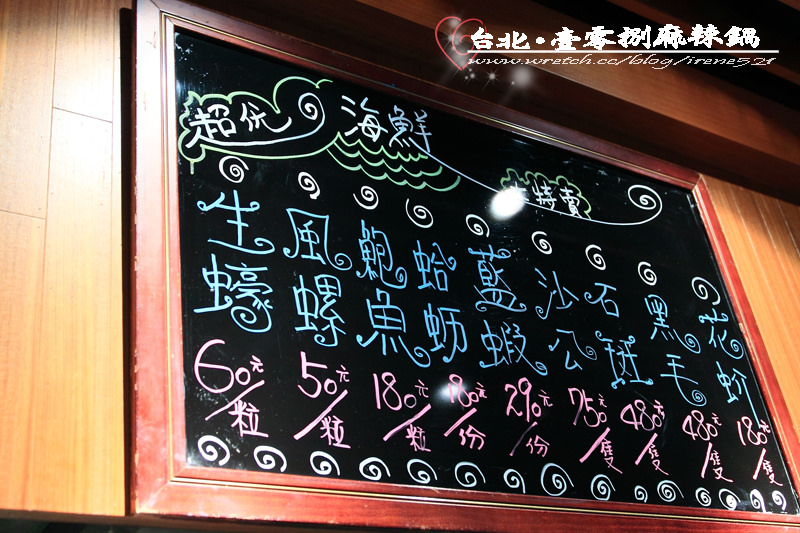 台北•壹零捌麻辣鍋
www.wretch.cc/blog/irene521
超优 海鮮 大特賣
生蠔 60元/粒
風螺 50元/粒
鮑魚 180元/粒
蛤蚋 180元/份
藍蝦 290元/份
沙公 750元/隻
石斑 480元/隻
黑毛 480元/隻
花蚧 180元/隻